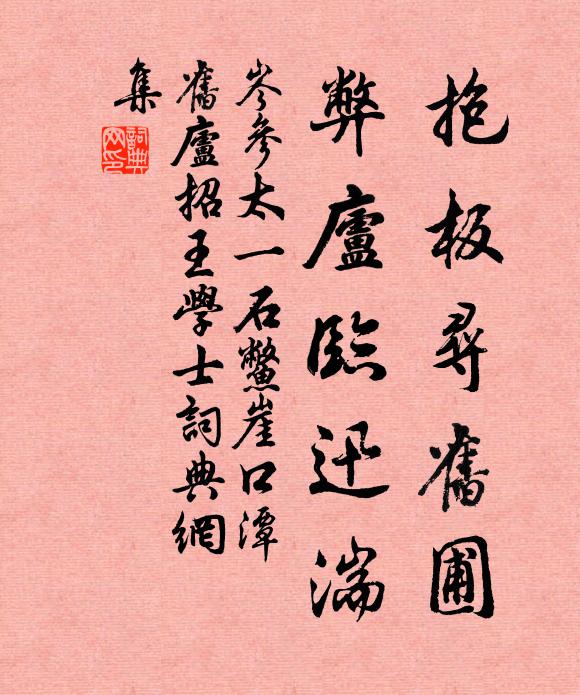 抱板尋舊圃
弊廬臨迅湍
岑參太一石鱉崖口潭
舊廬招王學士詞典網
集
詞典網印